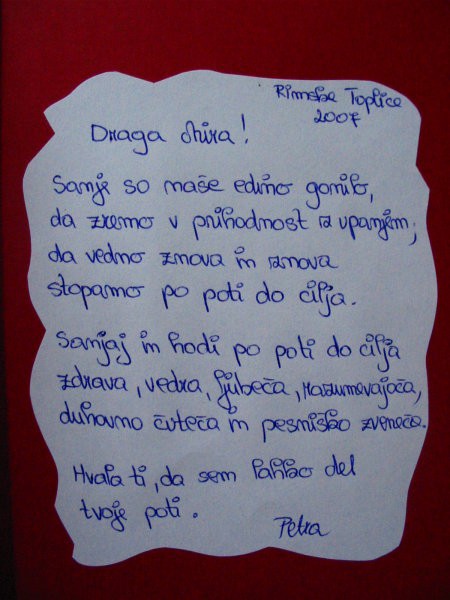 Rimske Toplice
2007
Draga Mira!
Sanje so naše edino gonilo,
da zremo v prihodnost iz upanjem,
da vedno znova in iznova
stopamo po poti do cilja.
Sanjaj in hodi po poti do cilja
zdrava, vedra, ljubeča, razumevajoča,
duhovno čuteča in pesniško zveneča.
Hvala ti, da sem lahko del
tvoje poti.
Petra